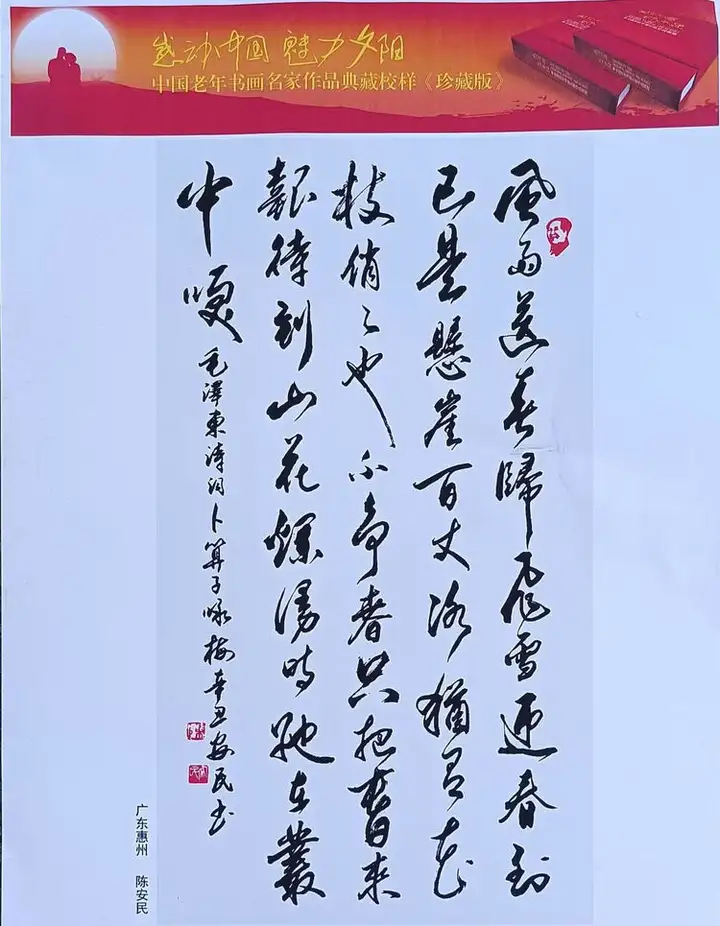 感动中国 魅力夕阳
中国老年书画名家作品典藏校样《珍藏版》
風雨送春歸飛雪迎春到
已是懸崖百丈冰猶有花
枝俏〻也不爭春只把春来
報待到山花爛漫時她在叢
中咲
毛澤東詩词卜算子咏梅辛丑安民书
广东惠州 陈安民